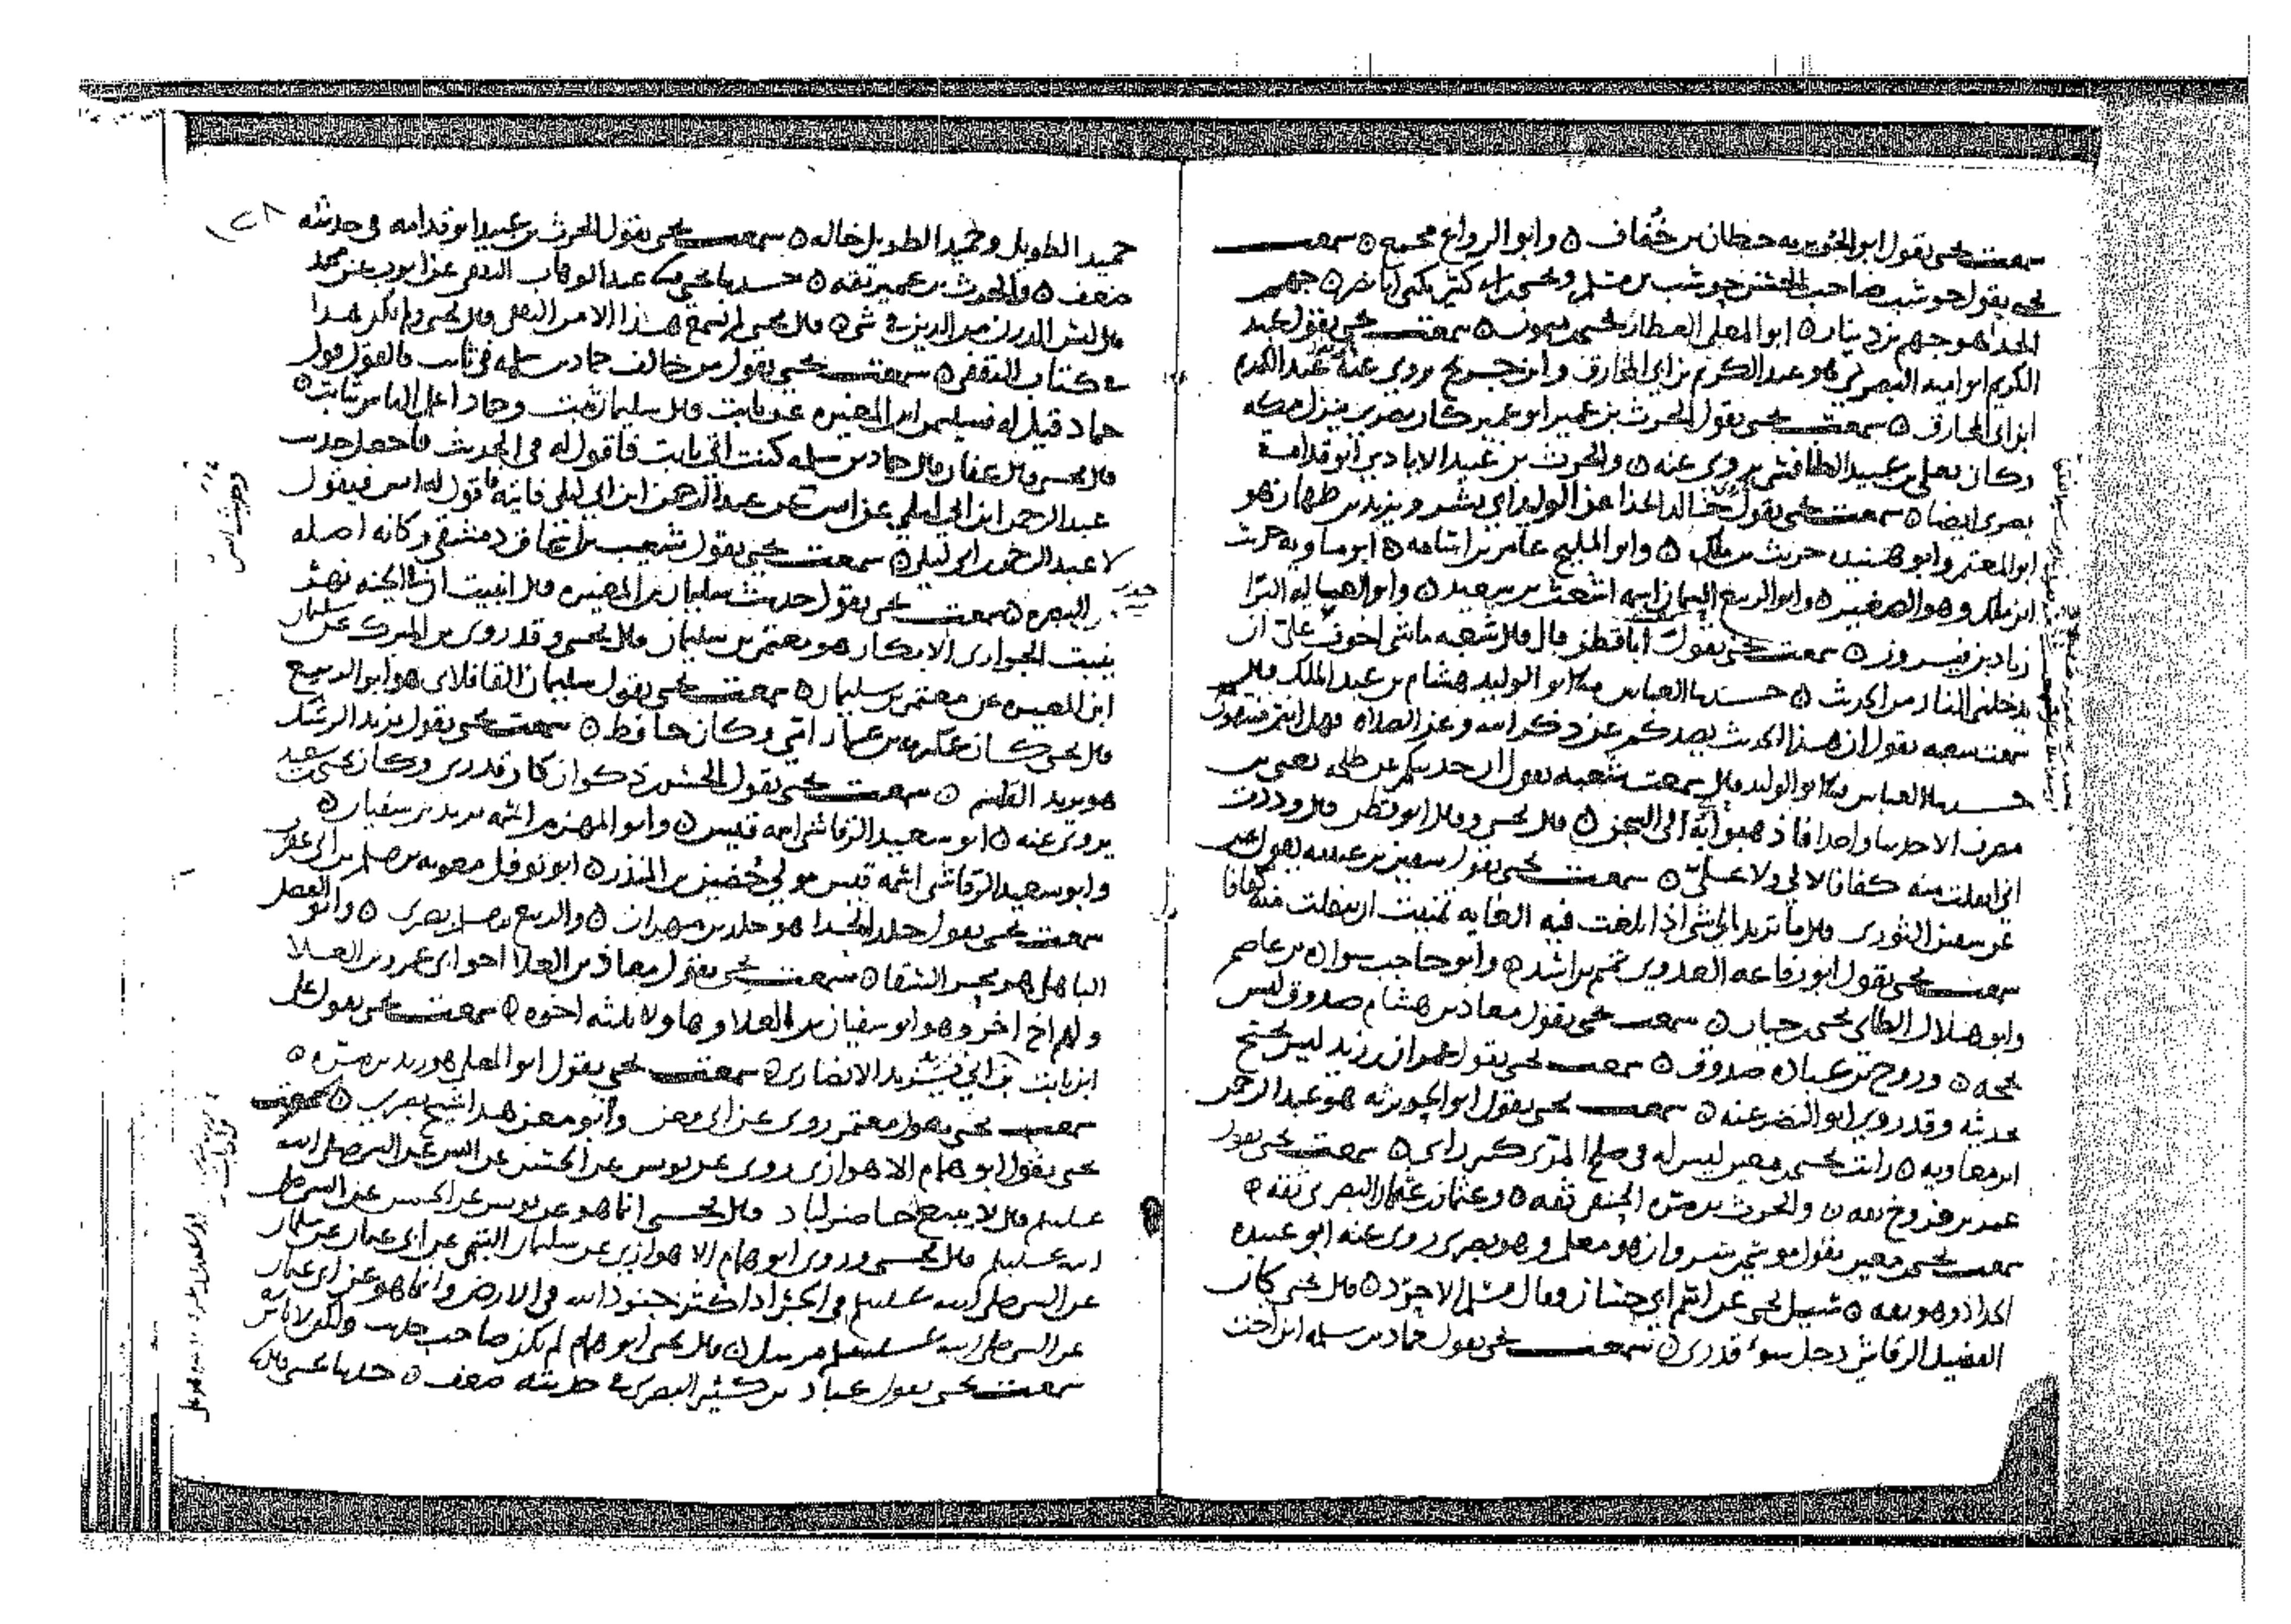 سمعت يحيى يقول ابو الجويريه حطان بن خُفاف ه وابو الرواغ مجمع ه سمعت
يحيى يقول حوشب صاحب الحسن حوشب بن مسلم ويحيى بن كثير يكنى ابا النضر ه جهير
الحذا هو جهم بن دينار ه ابو المعلى العطار يحيى بن ميمون ه سمعت يحيى يقول عبد
الكريم ابو اميه البصري هو عبد الكريم بن ابي المخارق وابن جريج يروي عنه عن عبد الكريم
ابن ابي المخارق ه سمعت يحيى يقول الحرث بن عمير ابو عمير كان بصري ينزل مكه
وكان يعلى بن عبيد الطنافسي يروي عنه ه والحرث بن عبيد الايادي ابو قدامة
بصري ايضا ه سمعت يحيى يقول خالد الحذا عن الوليد ابي بشر ويزيد بن طهمان هو
ابو المعتمر وابو هنيدة حريث بن ملك ه وابو المليح عامر بن اسامه ه ابو معاويه حرث
ابن ملك وهو الصغير ه وابو الربيع السمان اسمه اشعث بن سعيد ه وابو العاليه البرا
زياد بن فيروز ه سمعت يحيى يقول ابا قطن قال قال شعبه ما شي اخوف علي ان
يدخلني النار من الحديث ه حدثنا العباس نا ابو الوليد هشام بن عبد الملك قال
سمعت شعبه يقول ان هذا الحديث يصدكم عن ذكر الله وعن الصلاه فهل انتم منتهون
حدثنا العباس نا ابو الوليد قال سمعت شعبه يقول ان حدثتكم عن طلحه يعني بن
مصرف الا حديثا واحدا فاذهبوا بي الى السجن ه قال يحيى وقال ابو قطن قال وددت
اني انفلت منه كفافا لا لي ولا علي ه سمعت يحيى يقول سفين بن عيينه يقول
عن سفين الثوري قال ما تريد الى شي اذا بلغت فيه الغايه تمنيت ان تنفلت منه كفافا
سمعت يحيى يقول ابو رفاعه العدوي تميم بن اسد ه وابو حاجب سواده بن عاصم
وابو هلال الطائي يحيى بن حيان ه سمعت يحيى يقول معاذ بن هشام صدوق ليس
بحجه ه وروح بن عباده صدوق ه سمعت يحيى يقول مهران بن زيد ليس يحتج
بحديثه وقد روى ابو النضر عنه ه سمعت يحيى يقول ابو الحويرثه هو عبد الرحمن
ابن معاويه ه رايت يحيى بن معين ليس له في صلح المري كبير راي ه سمعت يحيى يقول
عمر بن فروخ ثقه ه والحرث بن مره الحنفي ثقه ه وعثمان بن عثمان البصري ثقه ه
سمعت يحيى بن معين يقول موسى بن ثروان هو معلم وهو بصري روى عنه ابو عبيده
الحداد وهو ثقه ه سئل يحيى عن ابي حسان وقال مسلم الاجرد ه قال يحيى كان
الفضل الرقاشي رجل سوء قدري ه سمعت يحيى يقول حماد بن سلمه ابن اخت
حميد الطويل وحميد الطويل خاله ه سمعت يحيى يقول الحرث بن عبيد ابو قدامه في حديثه
ضعف ه والحرث بن عمير ثقه ه حدثنا يحيى نا عبد الوهاب الثقفي عن ايوب عن محمد
قال ليس الدين من الدين في شي ه قال يحيى لم نسمع هذا الا من الثقفي قال يحيى ولم يكن هذا
في كتاب الثقفي ه سمعت يحيى يقول من خالف حماد بن سلمه في ثابت فالقول قول
حماد قيل له فسليمن ابن المغيره عن ثابت قال سليمان ثبت وحماد اعلم الناس بثابت ه
قال يحيى قال عفان قال حماد بن سلمه كنت اتي ثابت فاقول له في الحديث فاجعل حديث
عبد الرحمن ابن ابي ليلى عن انس وعن عبد الرحمن ابن ابي ليلى فاتيه فاقول له انس فيقول
لا عبد الرحمن ابن ابي ليلى ه سمعت يحيى يقول شعيب بن اسحاق دمشقي وكانه اصله
البصره ه سمعت يحيى يقول حديث سليمان بن المغيره قال انبيت ان في الجنه نهر
ينبت الجواري الابكار هو معتمر بن سليمان قال يحيى وقد روى بن المبرك عن سليمان
ابن المغيره عن معتمر بن سليمان ه سمعت يحيى يقول سليمان القافلاي هو ابو الربيع
قال يحيى كان عكرمه بن عمار امي وكان حافظ ه سمعت يحيى يقول يزيد الرشك
هو يزيد القسم ه سمعت يحيى يقول الحسن بن ذكوان كان قدري وكان يحيى بن سعيد
يروي عنه ه ابو سعيد الرقاشي اسمه قيس ه وابو المهزم اسمه يزيد بن سفيان ه
وابو سعيد الرقاشي اسمه قيس مولى حُضين بن المنذر ه ابو نوفل معويه بن مسلم بن ابي عقرب
سمعت يحيى يقول خلد الحذا هو خلد بن مهران ه والربيع بن مسلم بصري ه وابو الفضل
الباهلي هو بحر السقا ه سمعت يحيى يقول معاذ بن العلا اخو ابي عمرو بن العلا
ولهم اخ اخر وهو ابو سفيان بن العلا وهاولا ثلثه اخوه ه سمعت يحيى يقول علي
ابن ثابت بن ابي زيد الانصاري ه سمعت يحيى يقول ابو المعلى هو زيد بن مره ه
سمعت يحيى يقول معتمر روى عن ابي معن وابو معن هذا شيخ بصري ه سمعت
يحيى يقول ابو همام الاهوازي روى عن يونس عن الحسن عن انس عن النبي صلى الله
عليه وسلم قال لا يبيع حاضر لباد قال يحيى انما هو عن يونس عن الحسن عن النبي صلى
الله عليه وسلم قال يحيى وروى ابو همام الاهوازي عن سليمان التيمي عن ابي عثمان عن سلمان
عن النبي صلى الله عليه وسلم في الجراد اكثر جنود الله في الارض وانما هو عن ابي عثمان
عن النبي صلى الله عليه وسلم مرسل ه قال يحيى ابو همام لم يكن صاحب حديث ولكن لا باس
سمعت يحيى يقول عباد بن كثير البصري في حديثه ضعف ه حدثنا يحيى قال